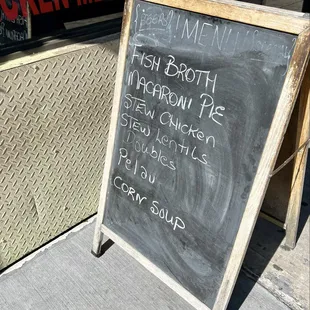 CKEN ME
TODAY'S MENU
FISH BROTH
MACARONI PIE
STEW CHICKEN
STEW LENTILS
Doubles
Pelau
CORN SOUP